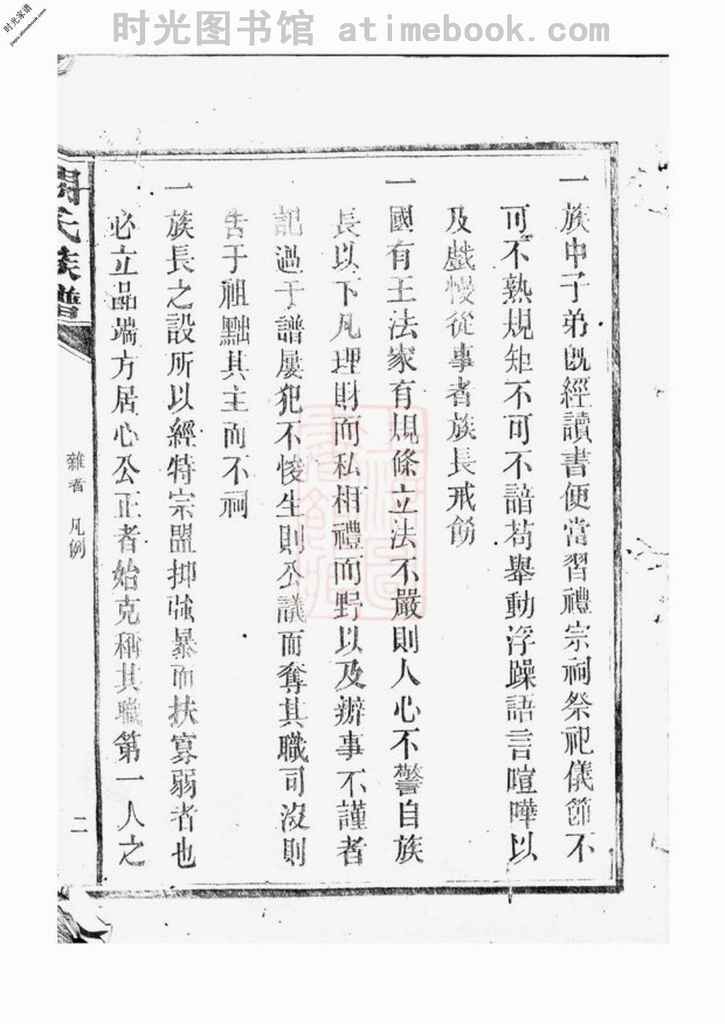 时光图书馆 atimebook.com
时光家谱
一族中子弟既經讀書便當習禮宗祠祭祀儀節不
可不熟規矩不可不諳苟舉動浮躁語言喧嘩以
及戲慢從事者族長戒飭
一國有王法家有規條立法不嚴則人心不警自族
長以下凡理財而私相禮而野以及辦事不謹者
記過于譜屢犯不悛生則公議而奪其職司沒則
告于祖黜其主而不祠
一族長之設所以經特宗盟抑強暴而扶寡弱者也
必立品端方居心公正者始克稱其職第一人之
氏族譜
雜著 凡例
二